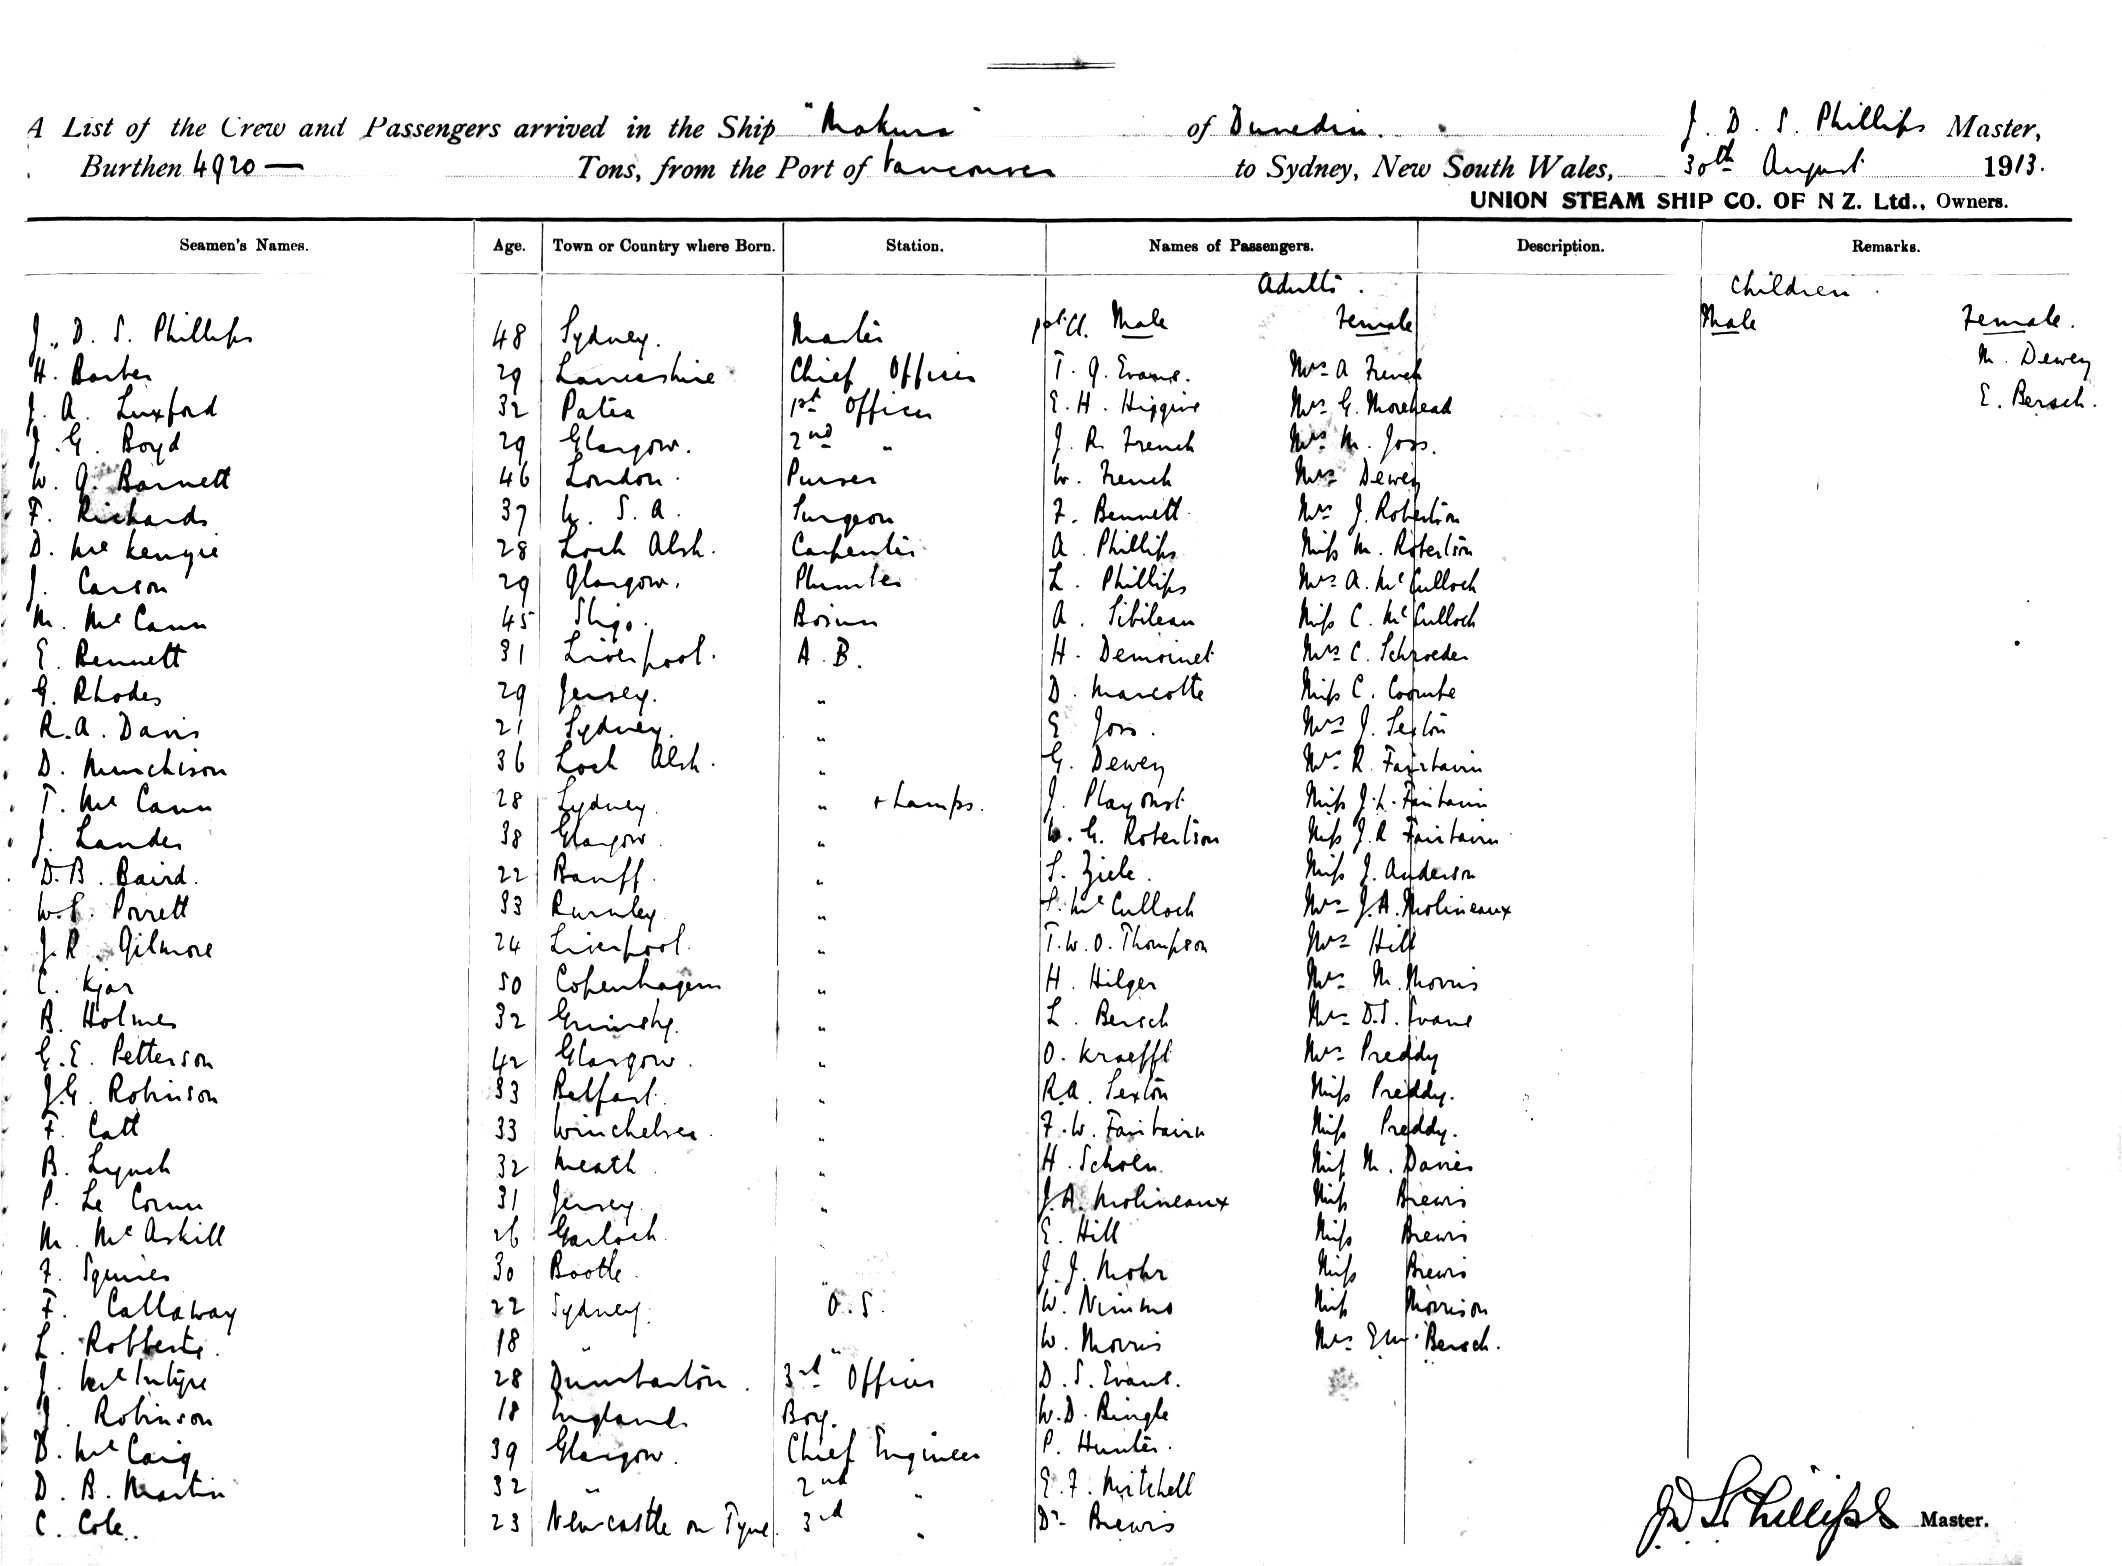 A List of the Crew and Passengers arrived in the Ship "Makura" of Dunedin. J. D. S. Phillips Master,
Burthen 4920 — Tons, from the Port of Vancouver to Sydney, New South Wales, 30th August 1913.
UNION STEAM SHIP CO. OF N Z. Ltd., Owners.
Seamen's Names. Age. Town or Country where Born. Station. Names of Passengers. Description. Remarks.
Adults. Children.
J. D. S. Phillips 48 Sydney. Master 1st Cl. Male Female Male Female.
H. Barber 29 Lancashire Chief Officer T. J. Evans. Mrs A French M. Dewey
J. A. Luxford 32 Patea 1st Officer E. H. Higgins Mrs G. Morehead E. Bersch.
J. G. Boyd 29 Glasgow. 2nd " J. R. French Mrs M. Joss.
W. J. Barnett 46 London. Purser W. French Mrs Dewey
F. Richards 37 U. S. A. Surgeon F. Bennett Mrs J. Robertson
D. McKenzie 28 Loch Alsh. Carpenter A. Phillips Miss M. Robertson
J. Carson 29 Glasgow. Plumber L. Phillips Mrs A. McCulloch
M. McCann 45 Sligo. Bosun A. Sibileau Miss C. McCulloch
E. Bennett 31 Liverpool. A. B. H. Demoinet Mrs C. Schroeder
G. Rhodes 29 Jersey. " D. Marcotte Miss C. Coombe
R. A. Davis 21 Sydney. " E Joss. Mrs J. Sexton
D. Murchison 36 Loch Alsh. " G. Dewey Mrs R. Fairbairn
T. McCann 28 Sydney. " + Lamps. J. Playoust. Miss J. L. Fairbairn
J. Lander 38 Glasgow. " W. G. Robertson Miss J. R Fairbairn
D. B. Baird. 22 Banff. " S. Ziele. Miss J. Anderson
W. S. Porrett 33 Burnley. " S. McCulloch Mrs J. A. Molineaux
J. R. Gilmore 24 Liverpool. " T. W. O. Thompson Mrs Hill
C. Kjar 50 Copenhagen " H. Hilger Mrs M. Morris
B. Holmes 32 Grimsby. " L. Bersch Mrs D. S. Evans
G. E. Petterson 42 Glasgow. " O. Kraefft Mrs Preddy
J. G. Robinson 33 Belfast. " R. A. Sexton Miss Preddy.
F. Catt 33 Winchelsea. " F. W. Fairbairn Miss Preddy.
B. Lynch 32 Meath. " H. Schoen. Miss M. Davies
P. Le Cornu 31 Jersey. " J. A. Molineaux Miss Brewis
M. McAskill 26 Gairloch. " E. Hill Miss Brewis
F. Squires 30 Bootle. " J. J. Mohr Miss Brewis
F. Callaway 22 Sydney. O. S. W. Nimmo Miss Morrison
L. Robberts. 18 " " W. Morris Mrs Bersch.
J. McIntyre 28 Dumbarton. 3rd Officer D. S. Evans.
J. Robinson 18 England. Boy. W. D. Bingle
D. McCaig 39 Glasgow. Chief Engineer P. Hunter.
D. B. Martin 32 " 2nd " E. F. Mitchell
C. Cole. 23 Newcastle on Tyne. 3rd " Dr Brewis
J D S Phillips Master.